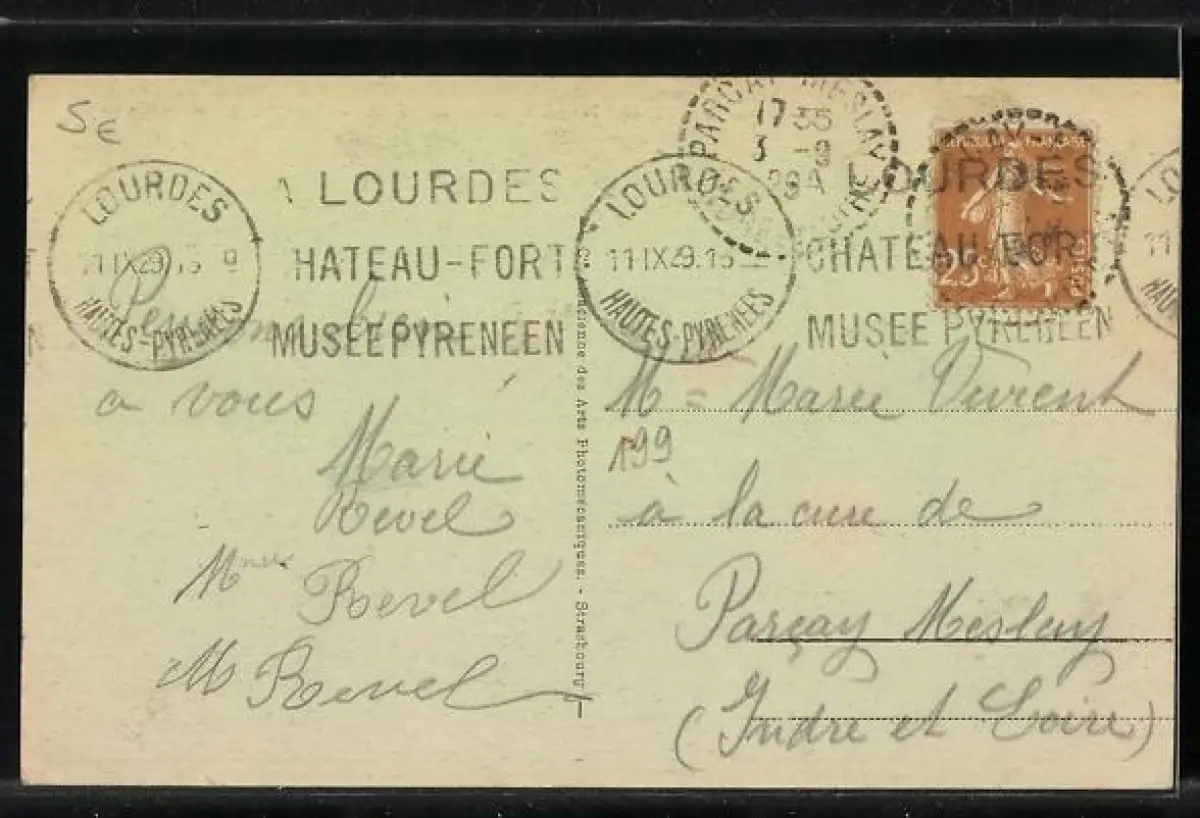 5€
LOURDES
11 IX 29.15
HAUTES-PYRENEES
LOURDES
HATEAU-FORT
MUSEE PYRENEEN
LOURDES
11 IX 29.15
HAUTES-PYRENEES
PARCAY MESLAY
17 35
3 -9
29A
LOURDES
CHATEAU-FORT
MUSEE PYRENEEN
REPUBLIQUE FRANÇAISE
25
POSTES
LO
11
HAU
à vous
Marie
Revel
Revel
M Revel
des Arts Photomécaniques. - Strasbourg
M = Marie
199
à la cure de
Parçay Meslay
(Indre et Loire)